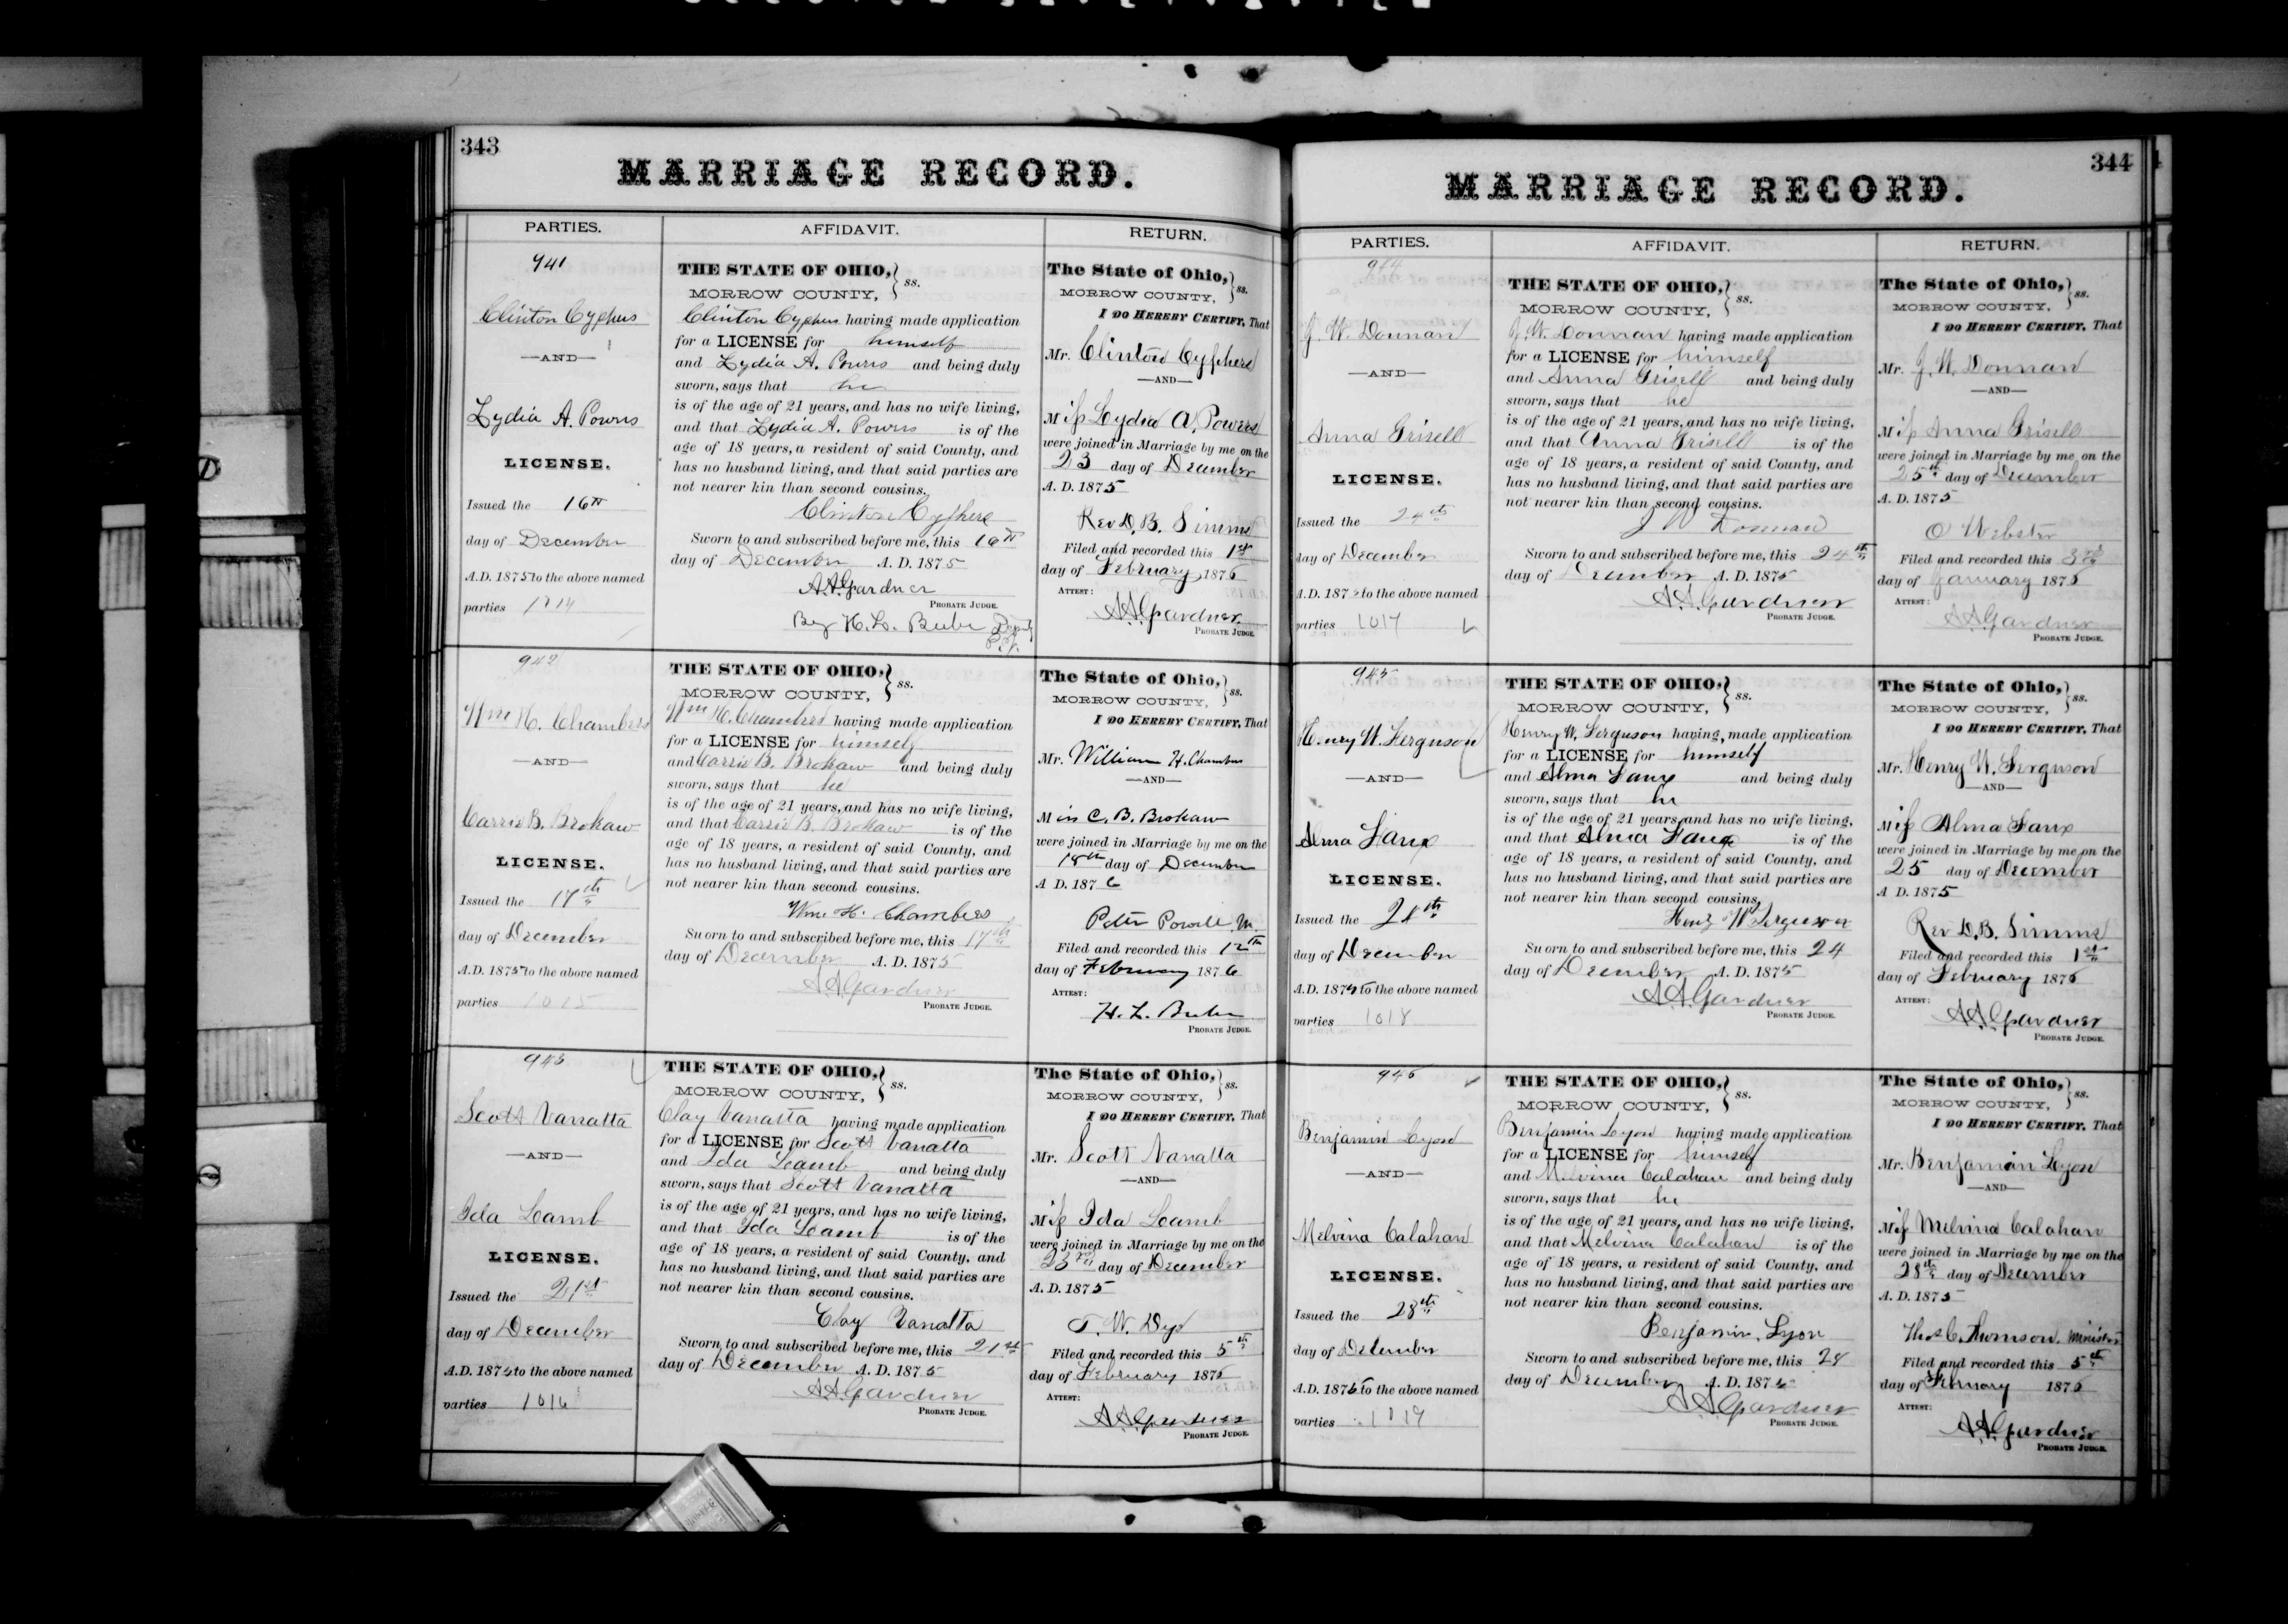 343
MARRIAGE RECORD.
PARTIES. AFFIDAVIT. RETURN.
941
Clinton Cyphers
—AND—
Lydia A. Powers
LICENSE.
Issued the 16th
day of December
A.D. 1875 to the above named
parties 1014
THE STATE OF OHIO, } ss.
MORROW COUNTY,
Clinton Cyphers having made application
for a LICENSE for himself
and Lydia A. Powers and being duly
sworn, says that he
is of the age of 21 years, and has no wife living,
and that Lydia A. Powers is of the
age of 18 years, a resident of said County, and
has no husband living, and that said parties are
not nearer kin than second cousins.
Clinton Cyphers
Sworn to and subscribed before me, this 16th
day of December A. D. 1875
A.A. Gardner
PROBATE JUDGE.
By H. L. Beebe Deputy
The State of Ohio, } ss.
MORROW COUNTY,
I DO HEREBY CERTIFY, That
Mr. Clinton Cyphers
—AND—
Miss Lydia A. Powers
were joined in Marriage by me on the
23 day of December
A. D. 1875
Rev D. B. Simms
Filed and recorded this 1st
day of February 1876
ATTEST:
A.A. Gardner
PROBATE JUDGE.
942
Wm H. Chambers
—AND—
Carrie B. Brokaw
LICENSE.
Issued the 17th
day of December
A.D. 1875 to the above named
parties 1015
THE STATE OF OHIO, } ss.
MORROW COUNTY,
Wm H. Chambers having made application
for a LICENSE for himself
and Carrie B. Brokaw and being duly
sworn, says that he
is of the age of 21 years, and has no wife living,
and that Carrie B. Brokaw is of the
age of 18 years, a resident of said County, and
has no husband living, and that said parties are
not nearer kin than second cousins.
Wm H. Chambers
Sworn to and subscribed before me, this 17th
day of December A. D. 1875
A.A. Gardner
PROBATE JUDGE.
The State of Ohio, } ss.
MORROW COUNTY,
I DO HEREBY CERTIFY, That
Mr. William H. Chambers
—AND—
Miss C. B. Brokaw
were joined in Marriage by me on the
18th day of December
A D. 1876
Peter Powell M.
Filed and recorded this 12th
day of February 1876
ATTEST:
H. L. Beebe
PROBATE JUDGE.
943
Scott Vanatta
—AND—
Ida Lamb
LICENSE.
Issued the 21st
day of December
A.D. 1875 to the above named
parties 1016
THE STATE OF OHIO, } ss.
MORROW COUNTY,
Clay Vanatta having made application
for a LICENSE for Scott Vanatta
and Ida Lamb and being duly
sworn, says that Scott Vanatta
is of the age of 21 years, and has no wife living,
and that Ida Lamb is of the
age of 18 years, a resident of said County, and
has no husband living, and that said parties are
not nearer kin than second cousins.
Clay Vanatta
Sworn to and subscribed before me, this 21st
day of December A. D. 1875
A.A. Gardner
PROBATE JUDGE.
The State of Ohio, } ss.
MORROW COUNTY,
I DO HEREBY CERTIFY, That
Mr. Scott Vanatta
—AND—
Miss Ida Lamb
were joined in Marriage by me on the
23rd day of December
A. D. 1875
T. W. Dye
Filed and recorded this 5th
day of February 1876
ATTEST:
A.A. Gardner
PROBATE JUDGE.
344
MARRIAGE RECORD.
PARTIES. AFFIDAVIT. RETURN.
944
J. W. Donnan
—AND—
Anna Grisell
LICENSE.
Issued the 24th
day of December
A.D. 1875 to the above named
parties 1017
THE STATE OF OHIO, } ss.
MORROW COUNTY,
J. W. Donnan having made application
for a LICENSE for himself
and Anna Grisell and being duly
sworn, says that he
is of the age of 21 years, and has no wife living,
and that Anna Grisell is of the
age of 18 years, a resident of said County, and
has no husband living, and that said parties are
not nearer kin than second cousins.
J W Donnan
Sworn to and subscribed before me, this 24th
day of December A. D. 1875
A.A. Gardner
PROBATE JUDGE.
The State of Ohio, } ss.
MORROW COUNTY,
I DO HEREBY CERTIFY, That
Mr. J. W. Donnan
—AND—
Miss Anna Grisell
were joined in Marriage by me on the
25th day of December
A. D. 1875
O Webster
Filed and recorded this 3rd
day of January 1876
ATTEST:
A.A. Gardner
PROBATE JUDGE.
945
Henry W. Ferguson
—AND—
Alma Faux
LICENSE.
Issued the 24th
day of December
A.D. 1875 to the above named
parties 1018
THE STATE OF OHIO, } ss.
MORROW COUNTY,
Henry W. Ferguson having made application
for a LICENSE for himself
and Alma Faux and being duly
sworn, says that he
is of the age of 21 years, and has no wife living,
and that Alma Faux is of the
age of 18 years, a resident of said County, and
has no husband living, and that said parties are
not nearer kin than second cousins,
Henry W Ferguson
Sworn to and subscribed before me, this 24
day of December A. D. 1875
A.A. Gardner
PROBATE JUDGE.
The State of Ohio, } ss.
MORROW COUNTY,
I DO HEREBY CERTIFY, That
Mr. Henry W. Ferguson
—AND—
Miss Alma Faux
were joined in Marriage by me on the
25 day of December
A D. 1875
Rev D.B. Simms
Filed and recorded this 1st
day of February 1876
ATTEST:
A.A. Gardner
PROBATE JUDGE.
946
Benjamin Lyon
—AND—
Melvina Calahan
LICENSE.
Issued the 28th
day of December
A.D. 1875 to the above named
parties 1019
THE STATE OF OHIO, } ss.
MORROW COUNTY,
Benjamin Lyon having made application
for a LICENSE for himself
and Melvina Calahan and being duly
sworn, says that he
is of the age of 21 years, and has no wife living,
and that Melvina Calahan is of the
age of 18 years, a resident of said County, and
has no husband living, and that said parties are
not nearer kin than second cousins.
Benjamin Lyon
Sworn to and subscribed before me, this 28
day of December A. D. 1875
A.A. Gardner
PROBATE JUDGE.
The State of Ohio, } ss.
MORROW COUNTY,
I DO HEREBY CERTIFY, That
Mr. Benjamin Lyon
—AND—
Miss Melvina Calahan
were joined in Marriage by me on the
28th day of December
A. D. 1875
Thos C. Thomson. Minister
Filed and recorded this 5th
day of February 1876
ATTEST:
A.A. Gardner
PROBATE JUDGE.